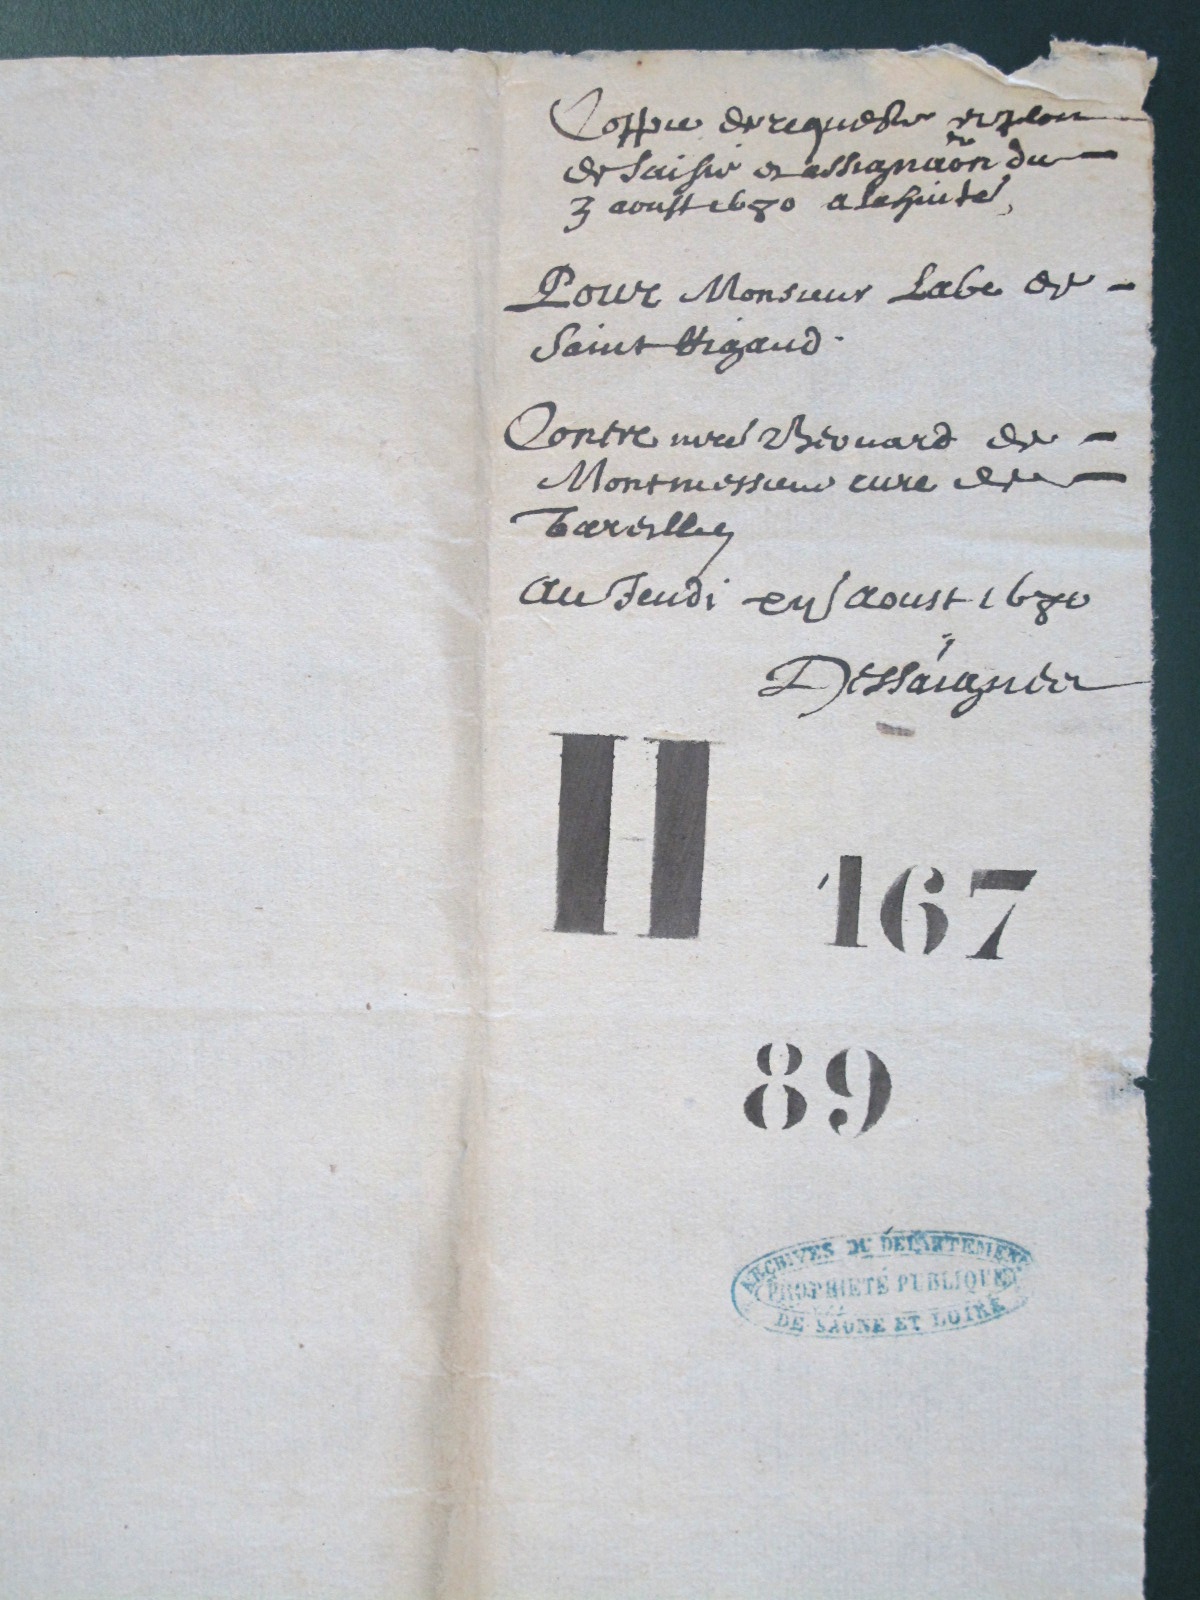 Coppie de requeste exploit
de saisie et assignaõn du
3 aoust 1680 a la suitte
Pour Monsieur Labe de
Saint Rigaud
Contre mre Thiouard de
Montmessieu cure de
Tareilly
Au Jeudi aoust 1680
Dessaignes
H 167
89
ARCHIVES DU DEPARTEMENT
PROPRIETÉ PUBLIQUE
DE SAONE ET LOIRE